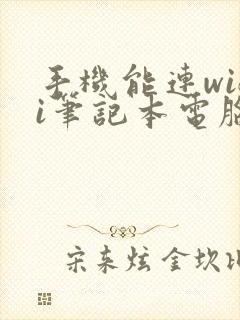 手機能連wi
i筆記本電腦
宋本炫金坎